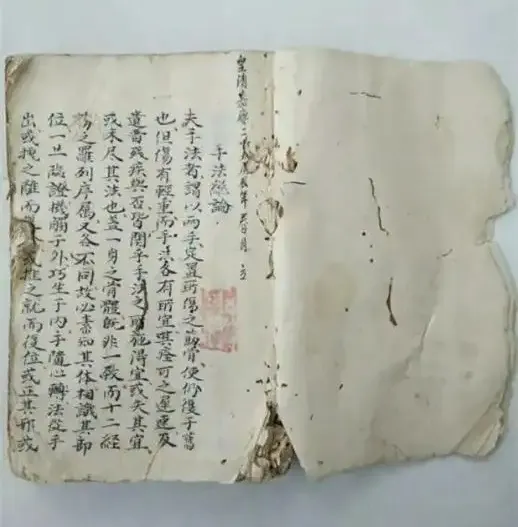 皇清嘉慶二年立
手法總論
夫手法者謂以兩手定置所傷之筋骨使仍復于舊
也但傷有輕重而手法各有所宜其痊可之遲速及
遺畱殘疾與否皆関乎手法之所施得宜或失其宜
或未尽其法也盖一身之骨體既非一致而十二経
筋之羅列序属又各不同故必素知其体相識其部
位一旦臨證機觸于外巧生于内手隨心轉法從手
出或拽之離而或推之就而復位或正其邪或